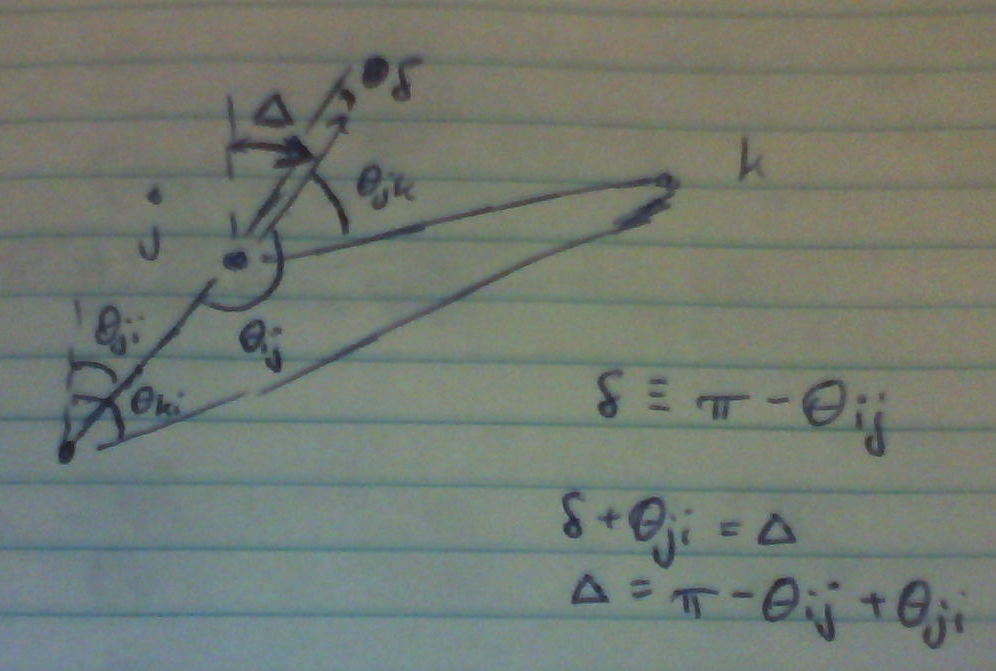 δ
Δ
k
θjk
j
θji
θij
θki
δ ≡ π - θij
δ + θji = Δ
Δ = π - θij + θji